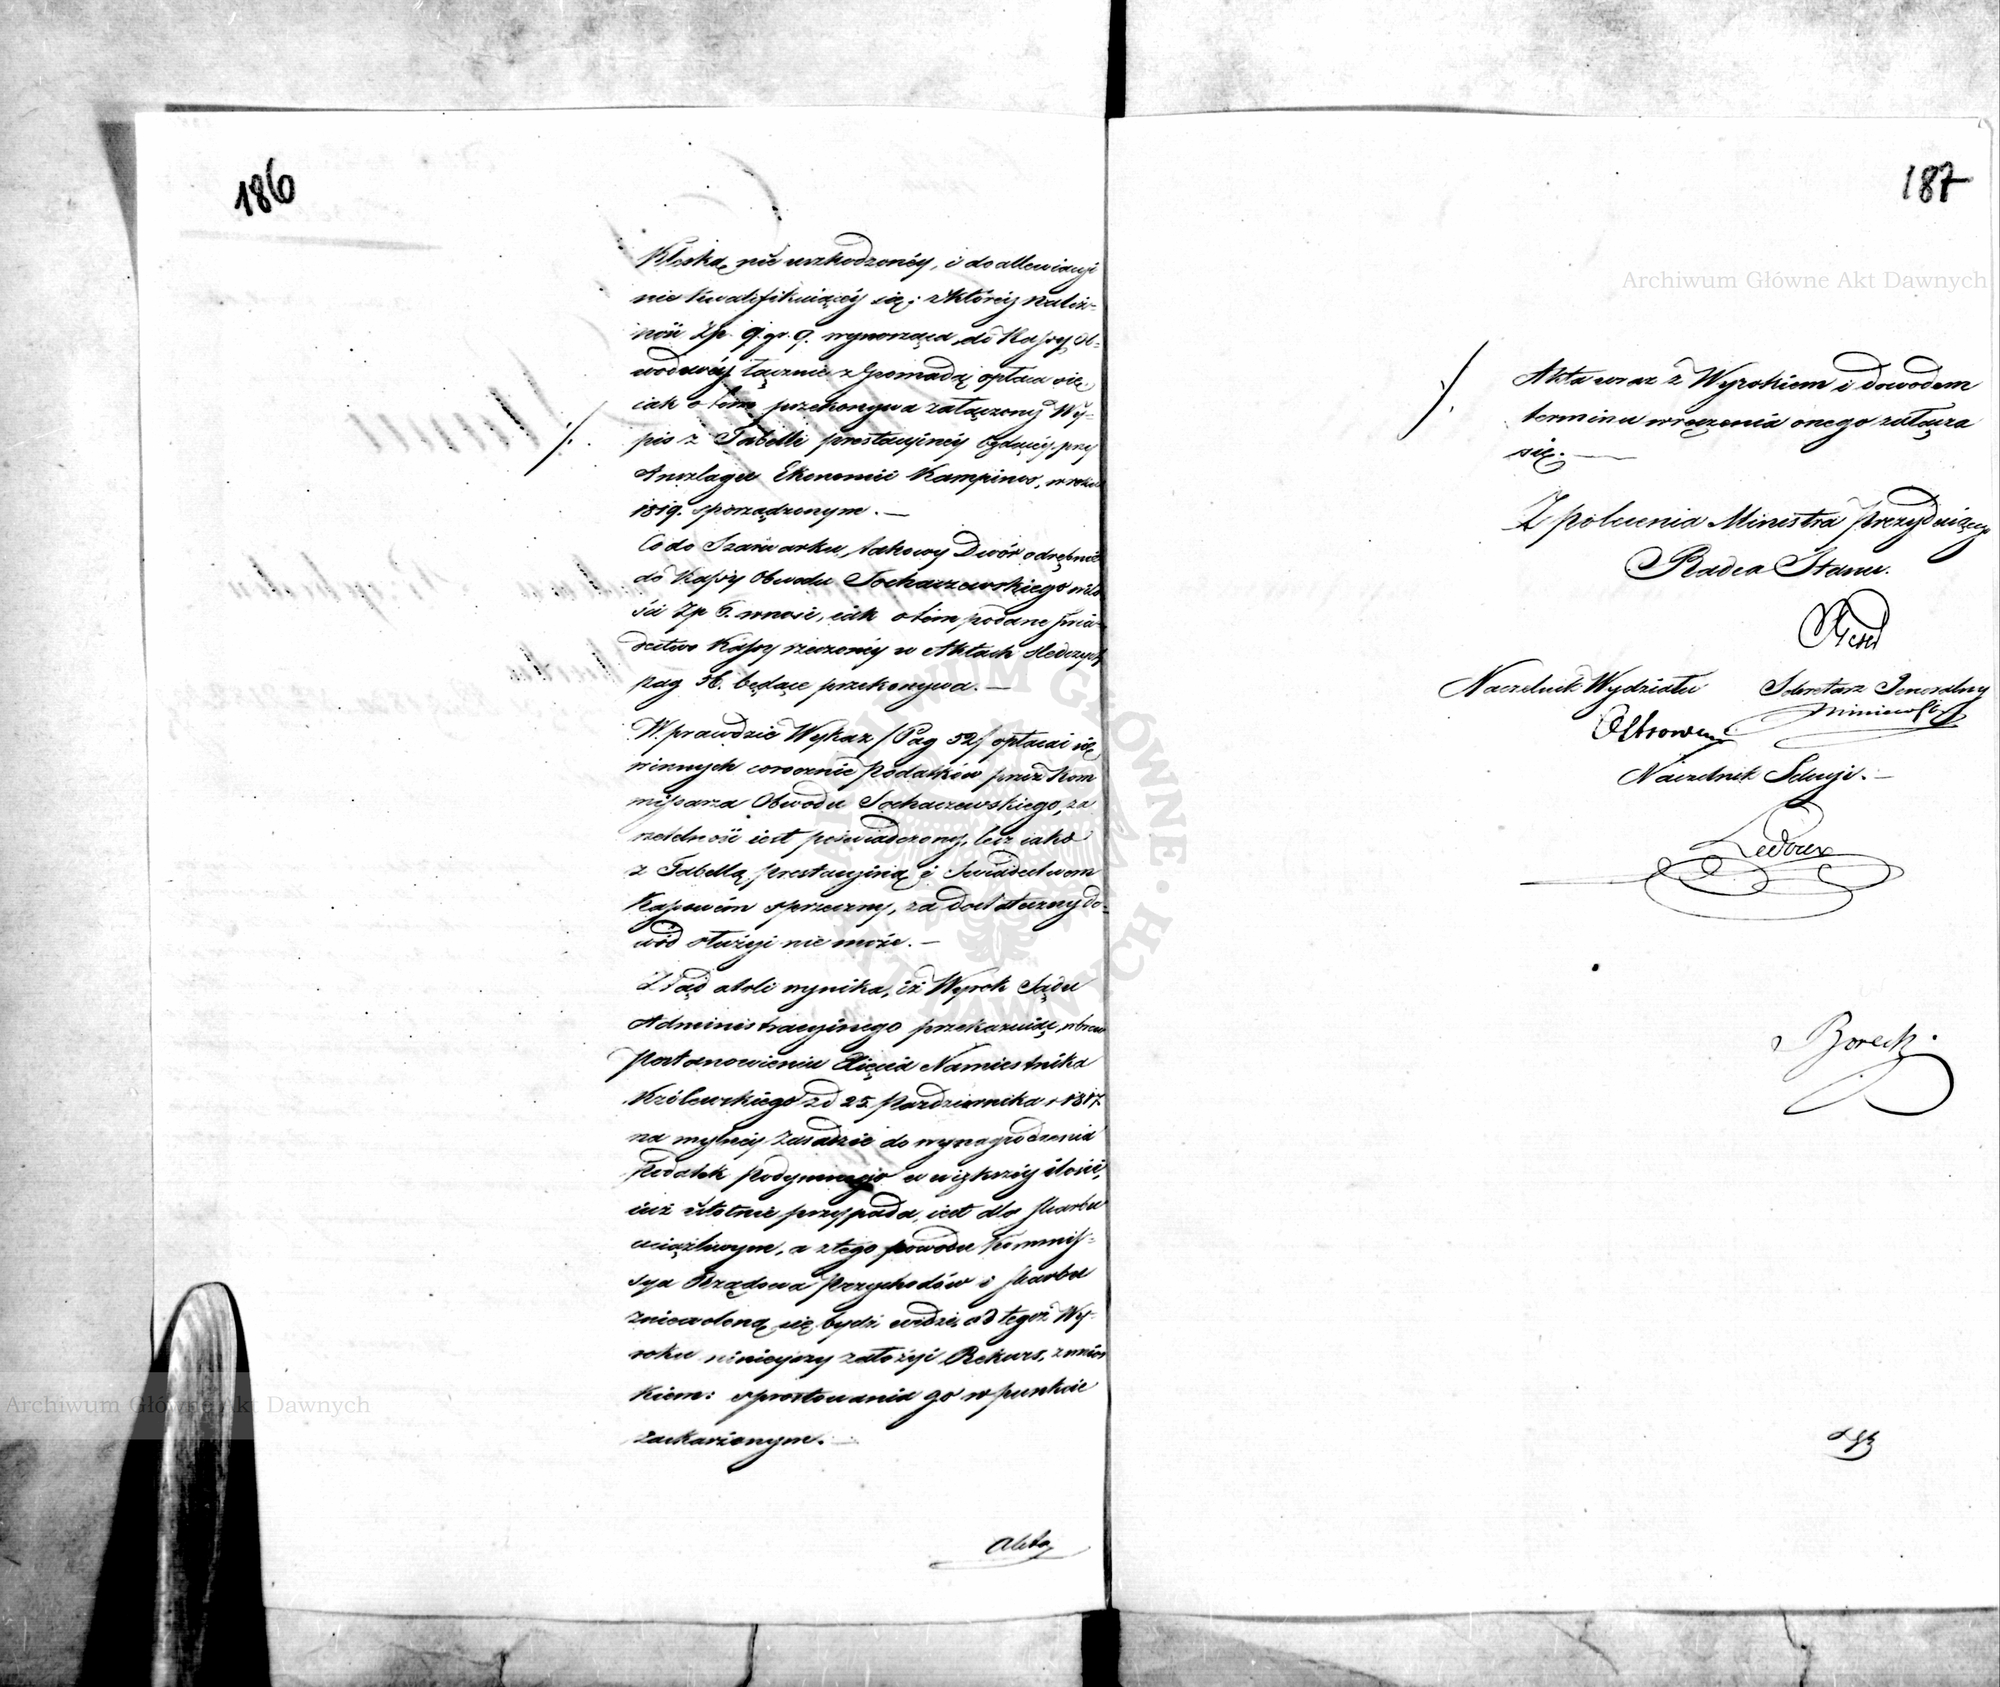 186
Klęską nie uszkodzonéy, i do allewiacyi
nie kwalifikuiącéy się; z któréy należy-
tość Zp. 9. gr. 9. wynosząca, do Kassy Ob-
wodowéy łącznie z Gromadą opłaca się,
iak o tém przekonywa załączony Wy-
pis z Tabelli prestacyinéy będącéy przy
Anszlagu Ekonomii Kampinos, w roku
1819. sporządzonym. —
Co do Szarwarku, takowy Dwór odrębnie
do Kassy Obwodu Sochaczewskiego w ilo-
ści Zp 6. wnosi, iak o tém podane świa-
dectwo Kassy rzeczonéy w Aktach śledczych
pag 56. będące przekonywa. —
W prawdzie Wykaz /Pag 52/ opłacać się
winnych corocznie Podatków przez Kom
missarza Obwodu Sochaczewskiego, za
rzetelność iest poświadczony, lecz iako
z Tabellą prestacyiną i Świadectwem
Kassowém sprzeczny, za dostateczny do-
wód służyć nie może. —
Ztąd atoli wynika, iż Wyrok Sądu
Administracyinego przekazuiąc, wbrew
Postanowieniu Xięcia Namiestnika
Królewskiego zd 25 Października r 1817.
na mylnéy Zasadzie do wynagrodzenia
Podatek Podymnego w większéy ilości,
niż istotnie przypada, iest dla Skarbu
uciążliwym, a z tego powodu Kommis-
sya Rządowa Przychodów i Skarbu
zniewoloną się bydź widzi, od tegoż Wy-
roku ninieyszy założyć Rekurs, z wnios
kiem: sprostowania go w punkcie
zaskarżonym. —
Akta
187
Akta wraz z Wyrokiem i dowodem
terminu wręczenia onego załącza
się. —
Z polecenia Ministra Prezyduiącego
Radca Stanu.
Naczelnik Wydziału Sekretarz Jeneralny
Naczelnik Sekcyi. —
Ledoux
Archiwum Główne Akt Dawnych
Archiwum Główne Akt Dawnych